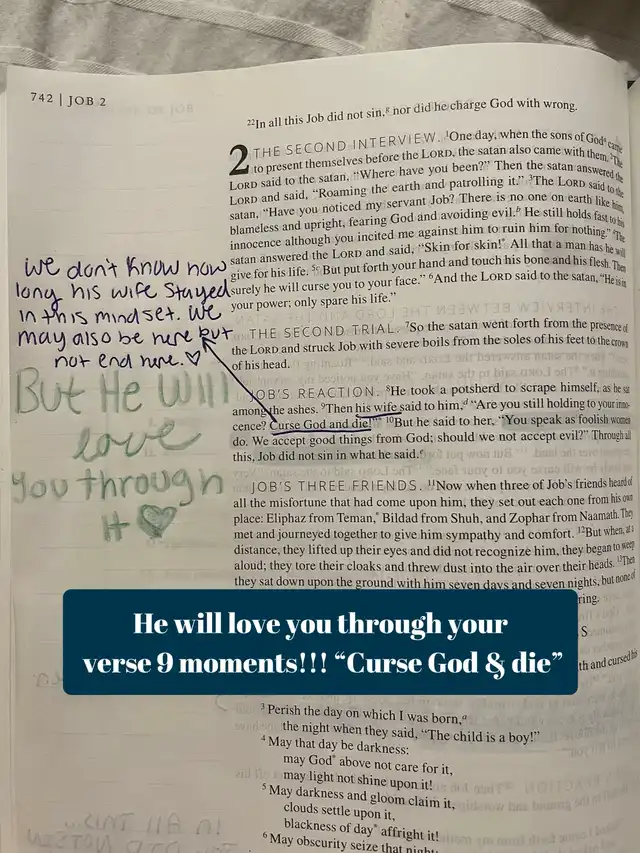 742 | JOB 2
22In all this Job did not sin,g nor did he charge God with wrong.
2 THE SECOND INTERVIEW. 1One day, when the sons of Goda came
to present themselves before the LORD, the satan also came with them. 2The
LORD said to the satan, “Where have you been?” Then the satan answered the
LORD and said, “Roaming the earth and patrolling it.” 3The LORD said to the
satan, “Have you noticed my servant Job? There is no one on earth like him,
blameless and upright, fearing God and avoiding evil.b He still holds fast to his
innocence although you incited me against him to ruin him for nothing.” 4The
satan answered the LORD and said, “Skin for skin!c All that a man has he will
give for his life. 5 But put forth your hand and touch his bone and his flesh. Then
surely he will curse you to your face.” 6And the LORD said to the satan, “He is in
your power; only spare his life.”
THE SECOND TRIAL. 7So the satan went forth from the presence of
the LORD and struck Job with severe boils from the soles of his feet to the crown
of his head.
JOB’S REACTION. 8He took a potsherd to scrape himself, as he sat
among the ashes. 9Then his wife said to him,d “Are you still holding to your inno-
cence? Curse God and die!” 10But he said to her, “You speak as foolish women
do. We accept good things from God; should we not accept evil?” Through all
this, Job did not sin in what he said.e
JOB’S THREE FRIENDS. 11Now when three of Job’s friends heard of
all the misfortune that had come upon him, they set out each one from his own
place: Eliphaz from Teman,* Bildad from Shuh, and Zophar from Naamath. They
met and journeyed together to give him sympathy and comfort. 12But when, at a
distance, they lifted up their eyes and did not recognize him, they began to weep
aloud; they tore their cloaks and threw dust into the air over their heads. 13Then
they sat down upon the ground with him seven days and seven nights, but none of
ring.
S
th and cursed his
3 Perish the day on which I was born,a
the night when they said, “The child is a boy!”
4 May that day be darkness:
may God* above not care for it,
may light not shine upon it!
5 May darkness and gloom claim it,
clouds settle upon it,
blackness of day* affright it!
6 May obscurity seize that night;
we don't know how
long his wife stayed
in this mindset. We
may also be here but
not end here. ♡
But He Will
love
you through
it ♡
He will love you through your
verse 9 moments!!! “Curse God & die”